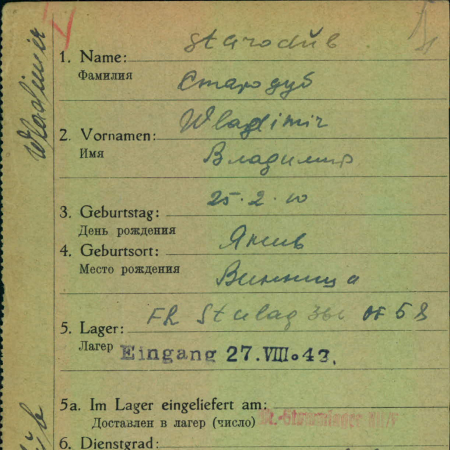 1. Name: Starodub
Фамилия Стародуб
2. Vornamen: Wladimir
Имя Владимир
3. Geburtstag: 25.2.10
День рождения
4. Geburtsort: Янив
Место рождения Винница
5. Lager: FR Stalag
Лагерь Eingang 27.VIII.43.
5a. Im Lager eingeliefert am:
Доставлен в лагер (число)
6. Dienstgrad:
Wladimir